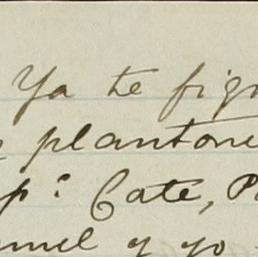 Ya te fig
plantone
Cate, P
y yo